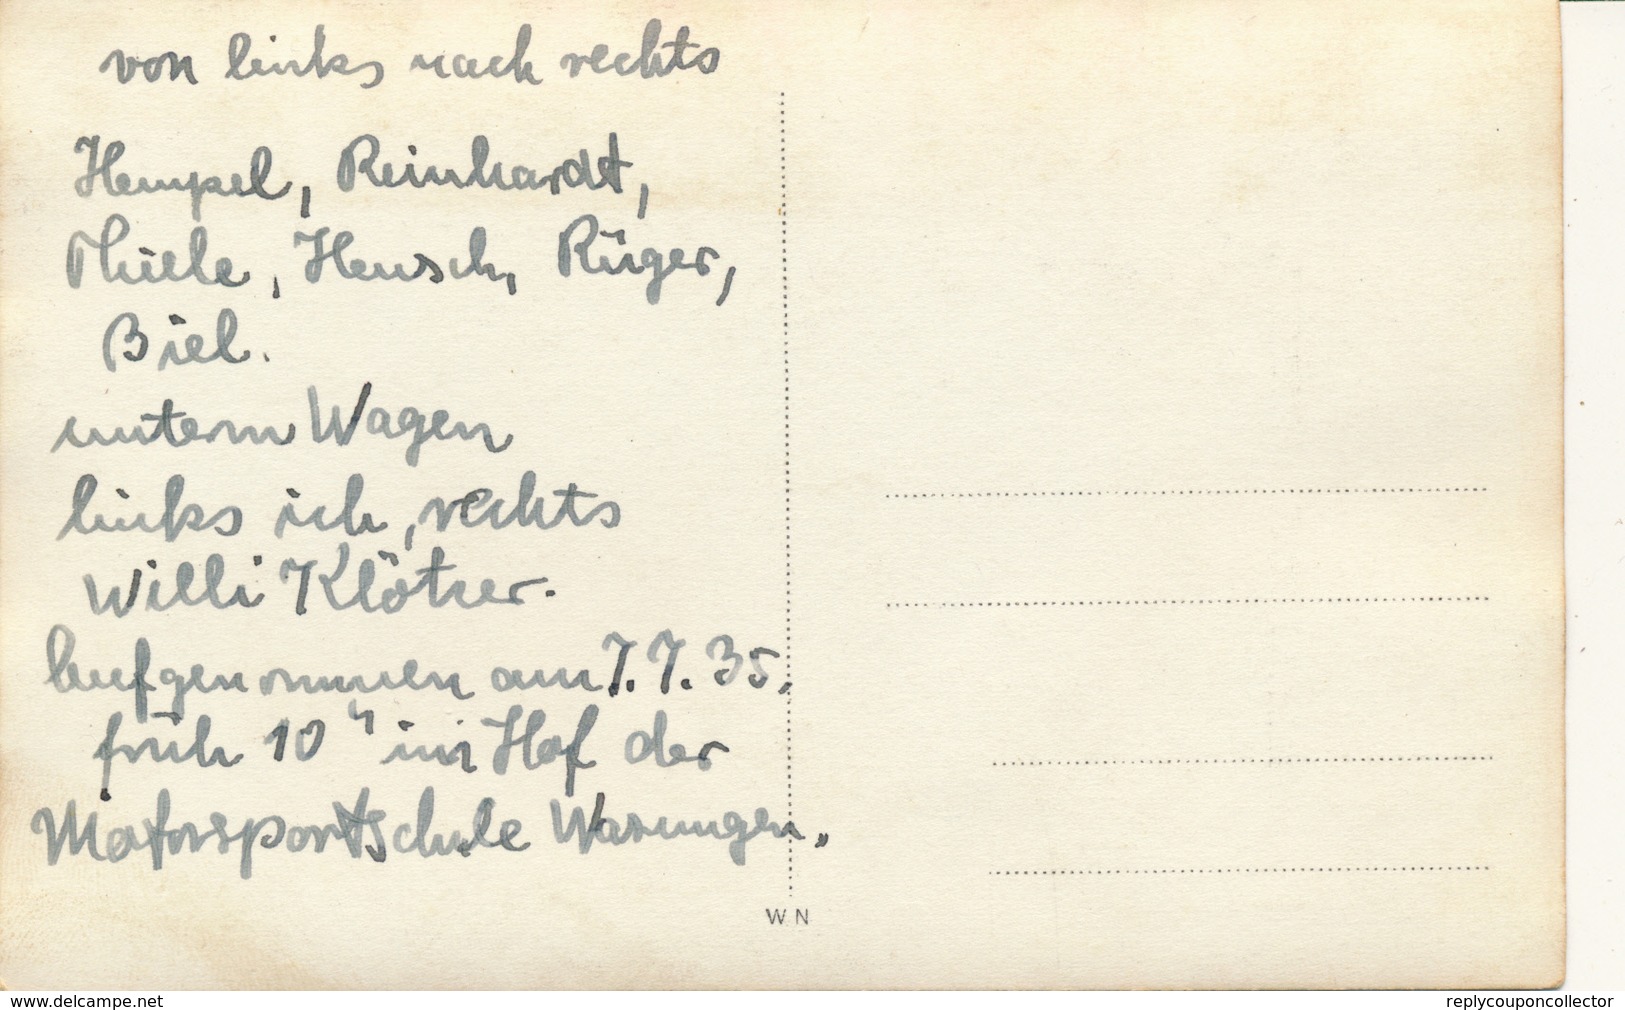 von links nach rechts
Hempel, Reinhardt,
Thiele, Hensch, Rüger,
Biel.
unterm Wagen
links ich, rechts
Willi Klötzer.
Aufgenommen am 7.7.35,
früh 10 h im Hof der
Motorsportschule Wasungen.
W N
www.delcampe.net
replycouponcollector